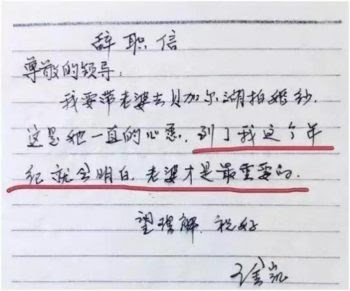 辞职信
尊敬的领导:
我要带老婆去贝加尔湖拍婚纱.
这是她一直的心愿. 到了我这个年
纪就会明白. 老婆才是最重要的.
望理解. 祝好
徐凯